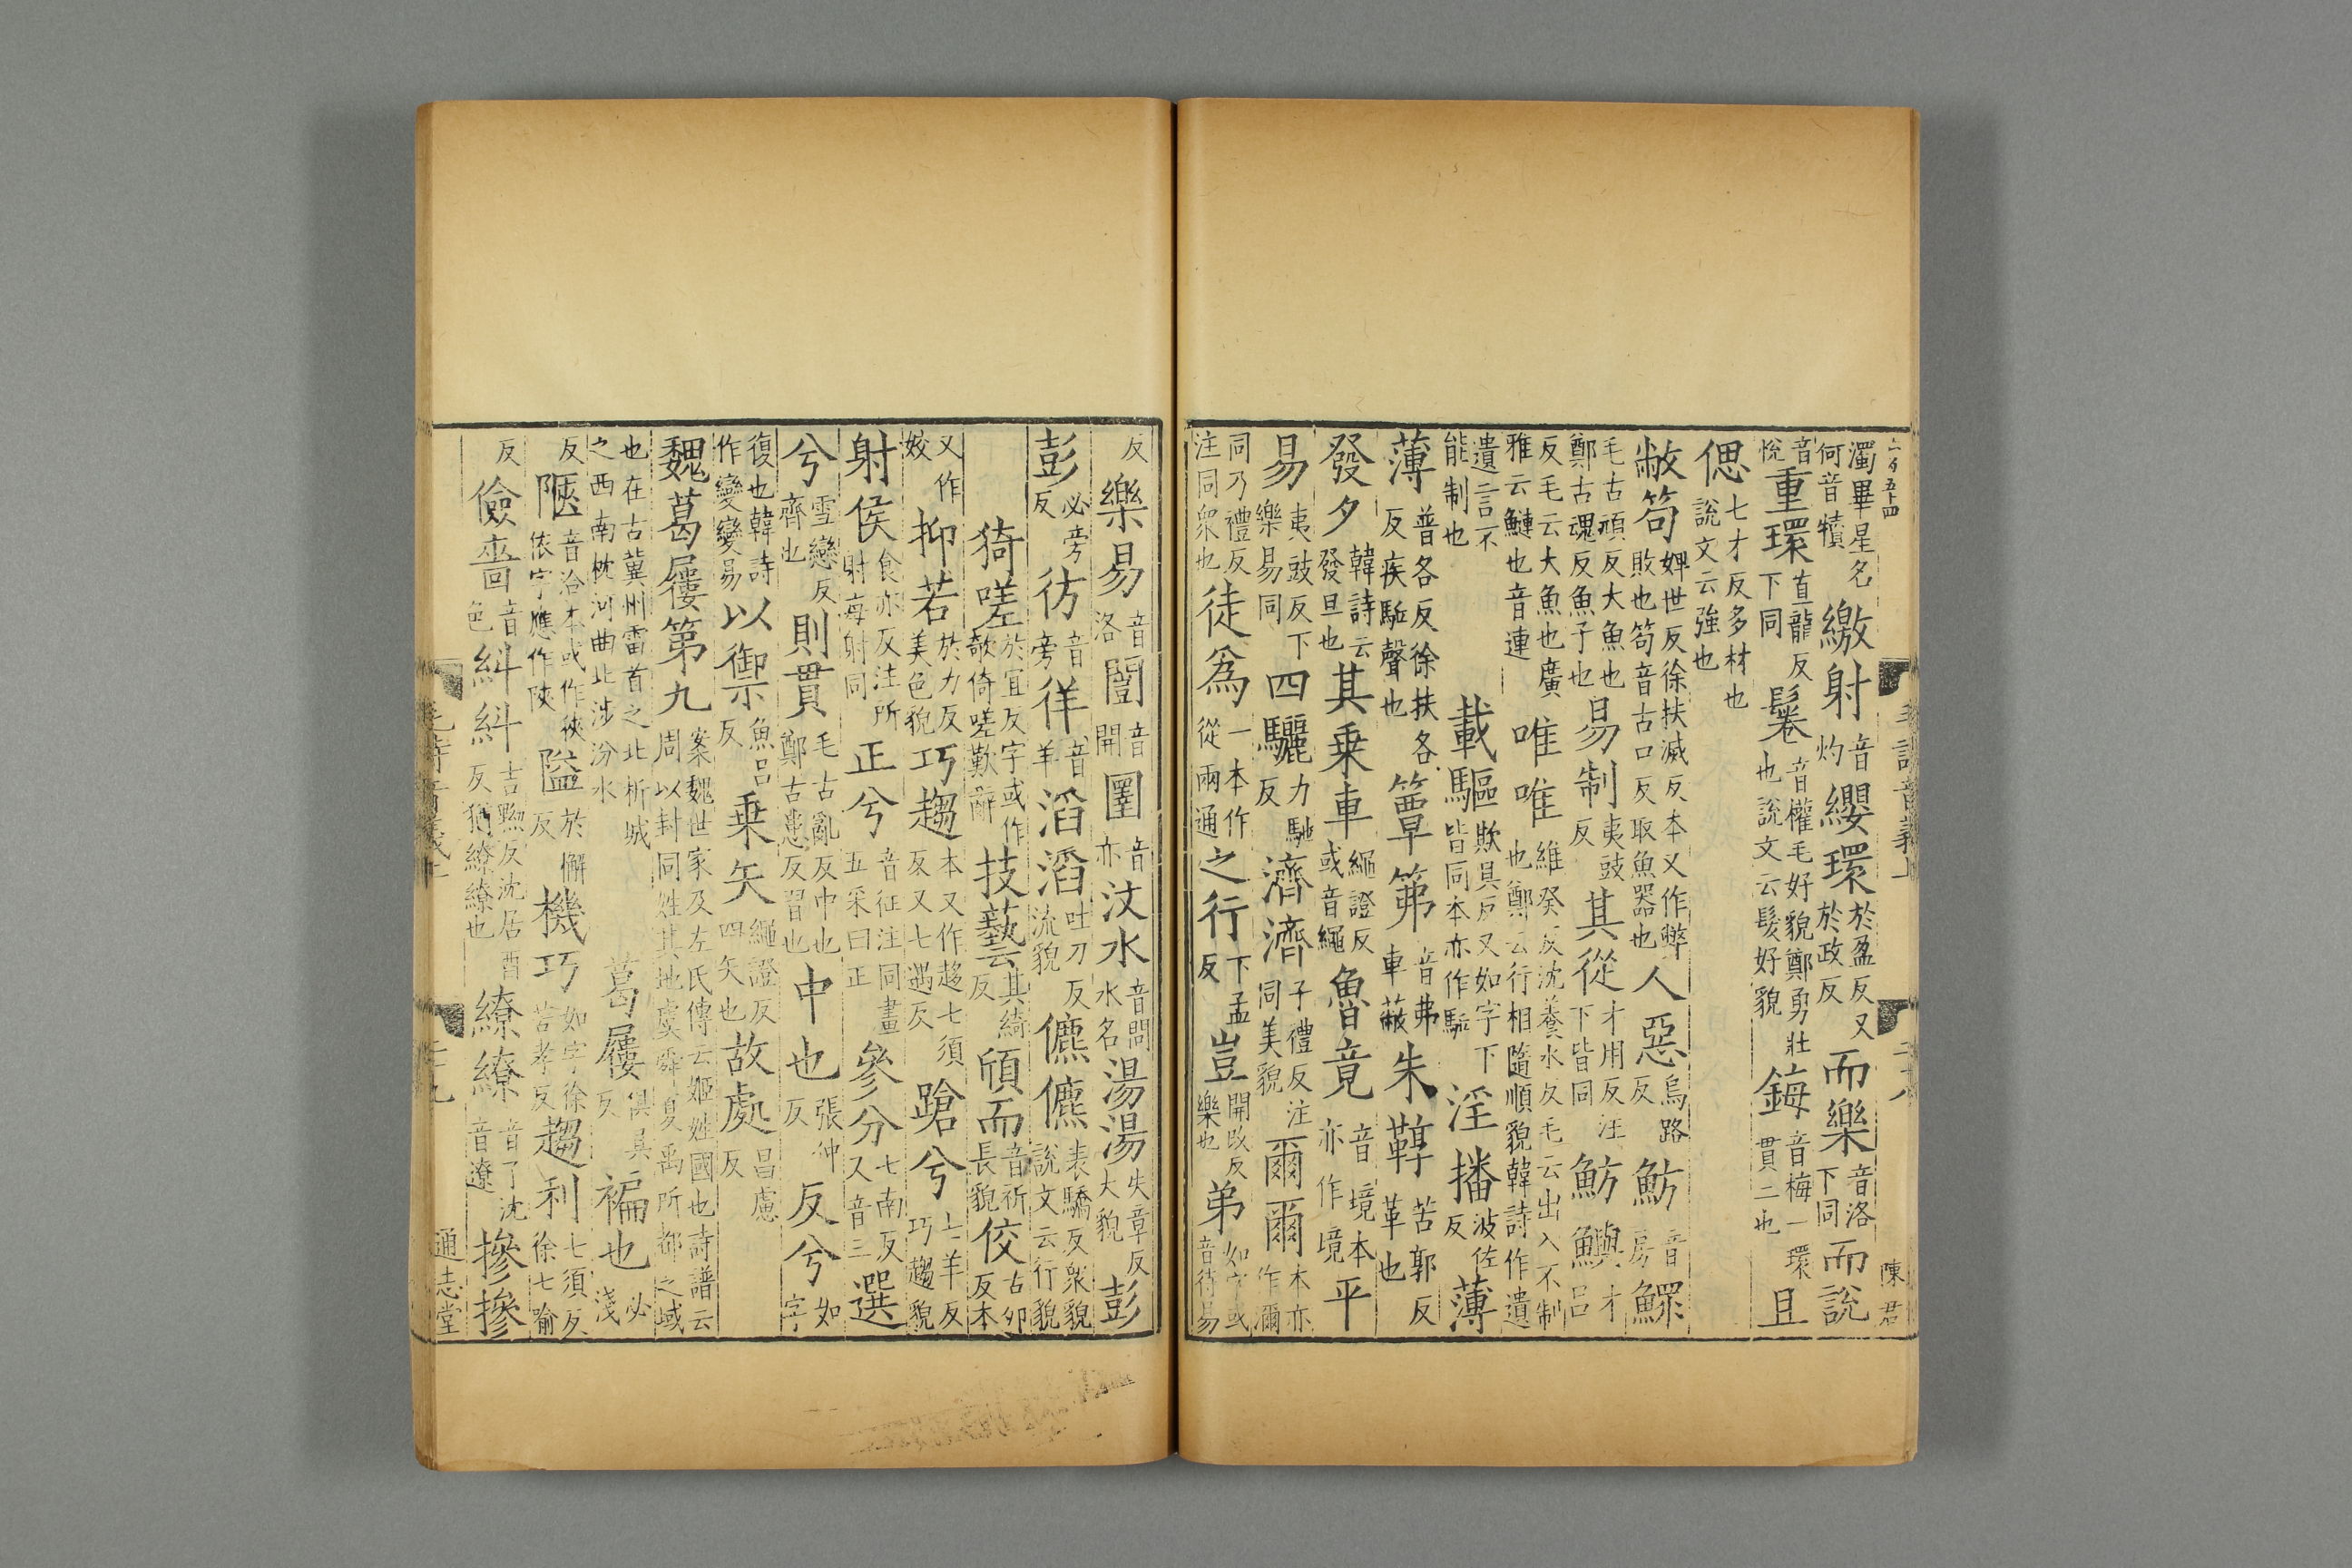 濁畢星名何音犢繳射音灼纓環於盈反又於政反而樂音洛下同而說
音悅重環直龍反下同鬈音權毛好貌鄭勇壯也說文云髮好貌鋂音梅一環貫二也且
偲七才反多材也說文云強也
敝笱婢世反徐扶滅反本又作弊敗也笱音古口反取魚器也人惡烏路反魴音房鰥
毛古頑反大魚也鄭古魂反魚子也易制夷豉反其從才用反注下皆同魴鱮才呂
反毛云大魚也廣雅云鰱也音連唯唯維癸反沈養水反毛云出入不制也鄭云行相隨順貌韓詩作遺
遺言不能制也載驅欺具反又如字下皆同本亦作駈淫播波佐反薄
薄普各反徐扶各反疾駈聲也簟笰音弗車蔽朱鞹苦郭反革也
發夕韓詩云發旦也其乗車繩證反或音繩魯竟音境本亦作境平
易夷豉反下樂易同四驪力馳反濟濟子禮反注同美貌爾爾本亦作爾
同乃禮反注同衆也徒爲一本作從兩通之行下孟反豈開改反樂也弟如字或音待易
反樂易音洛闓音開圛音亦汶水音問水名湯湯失章反大貌彭
彭必旁反彷音旁徉音羊滔滔吐刀反流貌儦儦表驕反衆貌說文云行貌
猗嗟於宜反字或作欹倚嗟歎辭技藝其綺反頎而音祈長貌佼古卯反本
又作姣抑若於力反美色貌巧趨本又作趍七須反又七遇反蹌兮七羊反巧趨貌
射侯食亦反注所射每射同正兮音征注同畫五采曰正參分七南反又音三選
兮雪戀反齊也則貫毛古亂反中也鄭古患反習也中也張仲反反兮如字
復也韓詩作變變易以禦魚呂反乗矢繩證反四矢也故處昌慮反
魏葛屨第九案魏世家及左氏傳云姬姓國也詩譜云周以封同姓其地虞舜夏禹所都之域
也在古冀州雷首之北析城之西南枕河曲北涉汾水葛屨俱具反褊也必淺
反陿音洽本或作狹依字應作陝隘於懈反機巧如字徐苦孝反趨利七須反徐七喻
反儉嗇音色糾糾吉黝反沈居酉反猶繚繚也繚繚音了沈音遼摻摻
毛詩音義上
二十八
陳君
毛詩音義上
二十九
通志堂